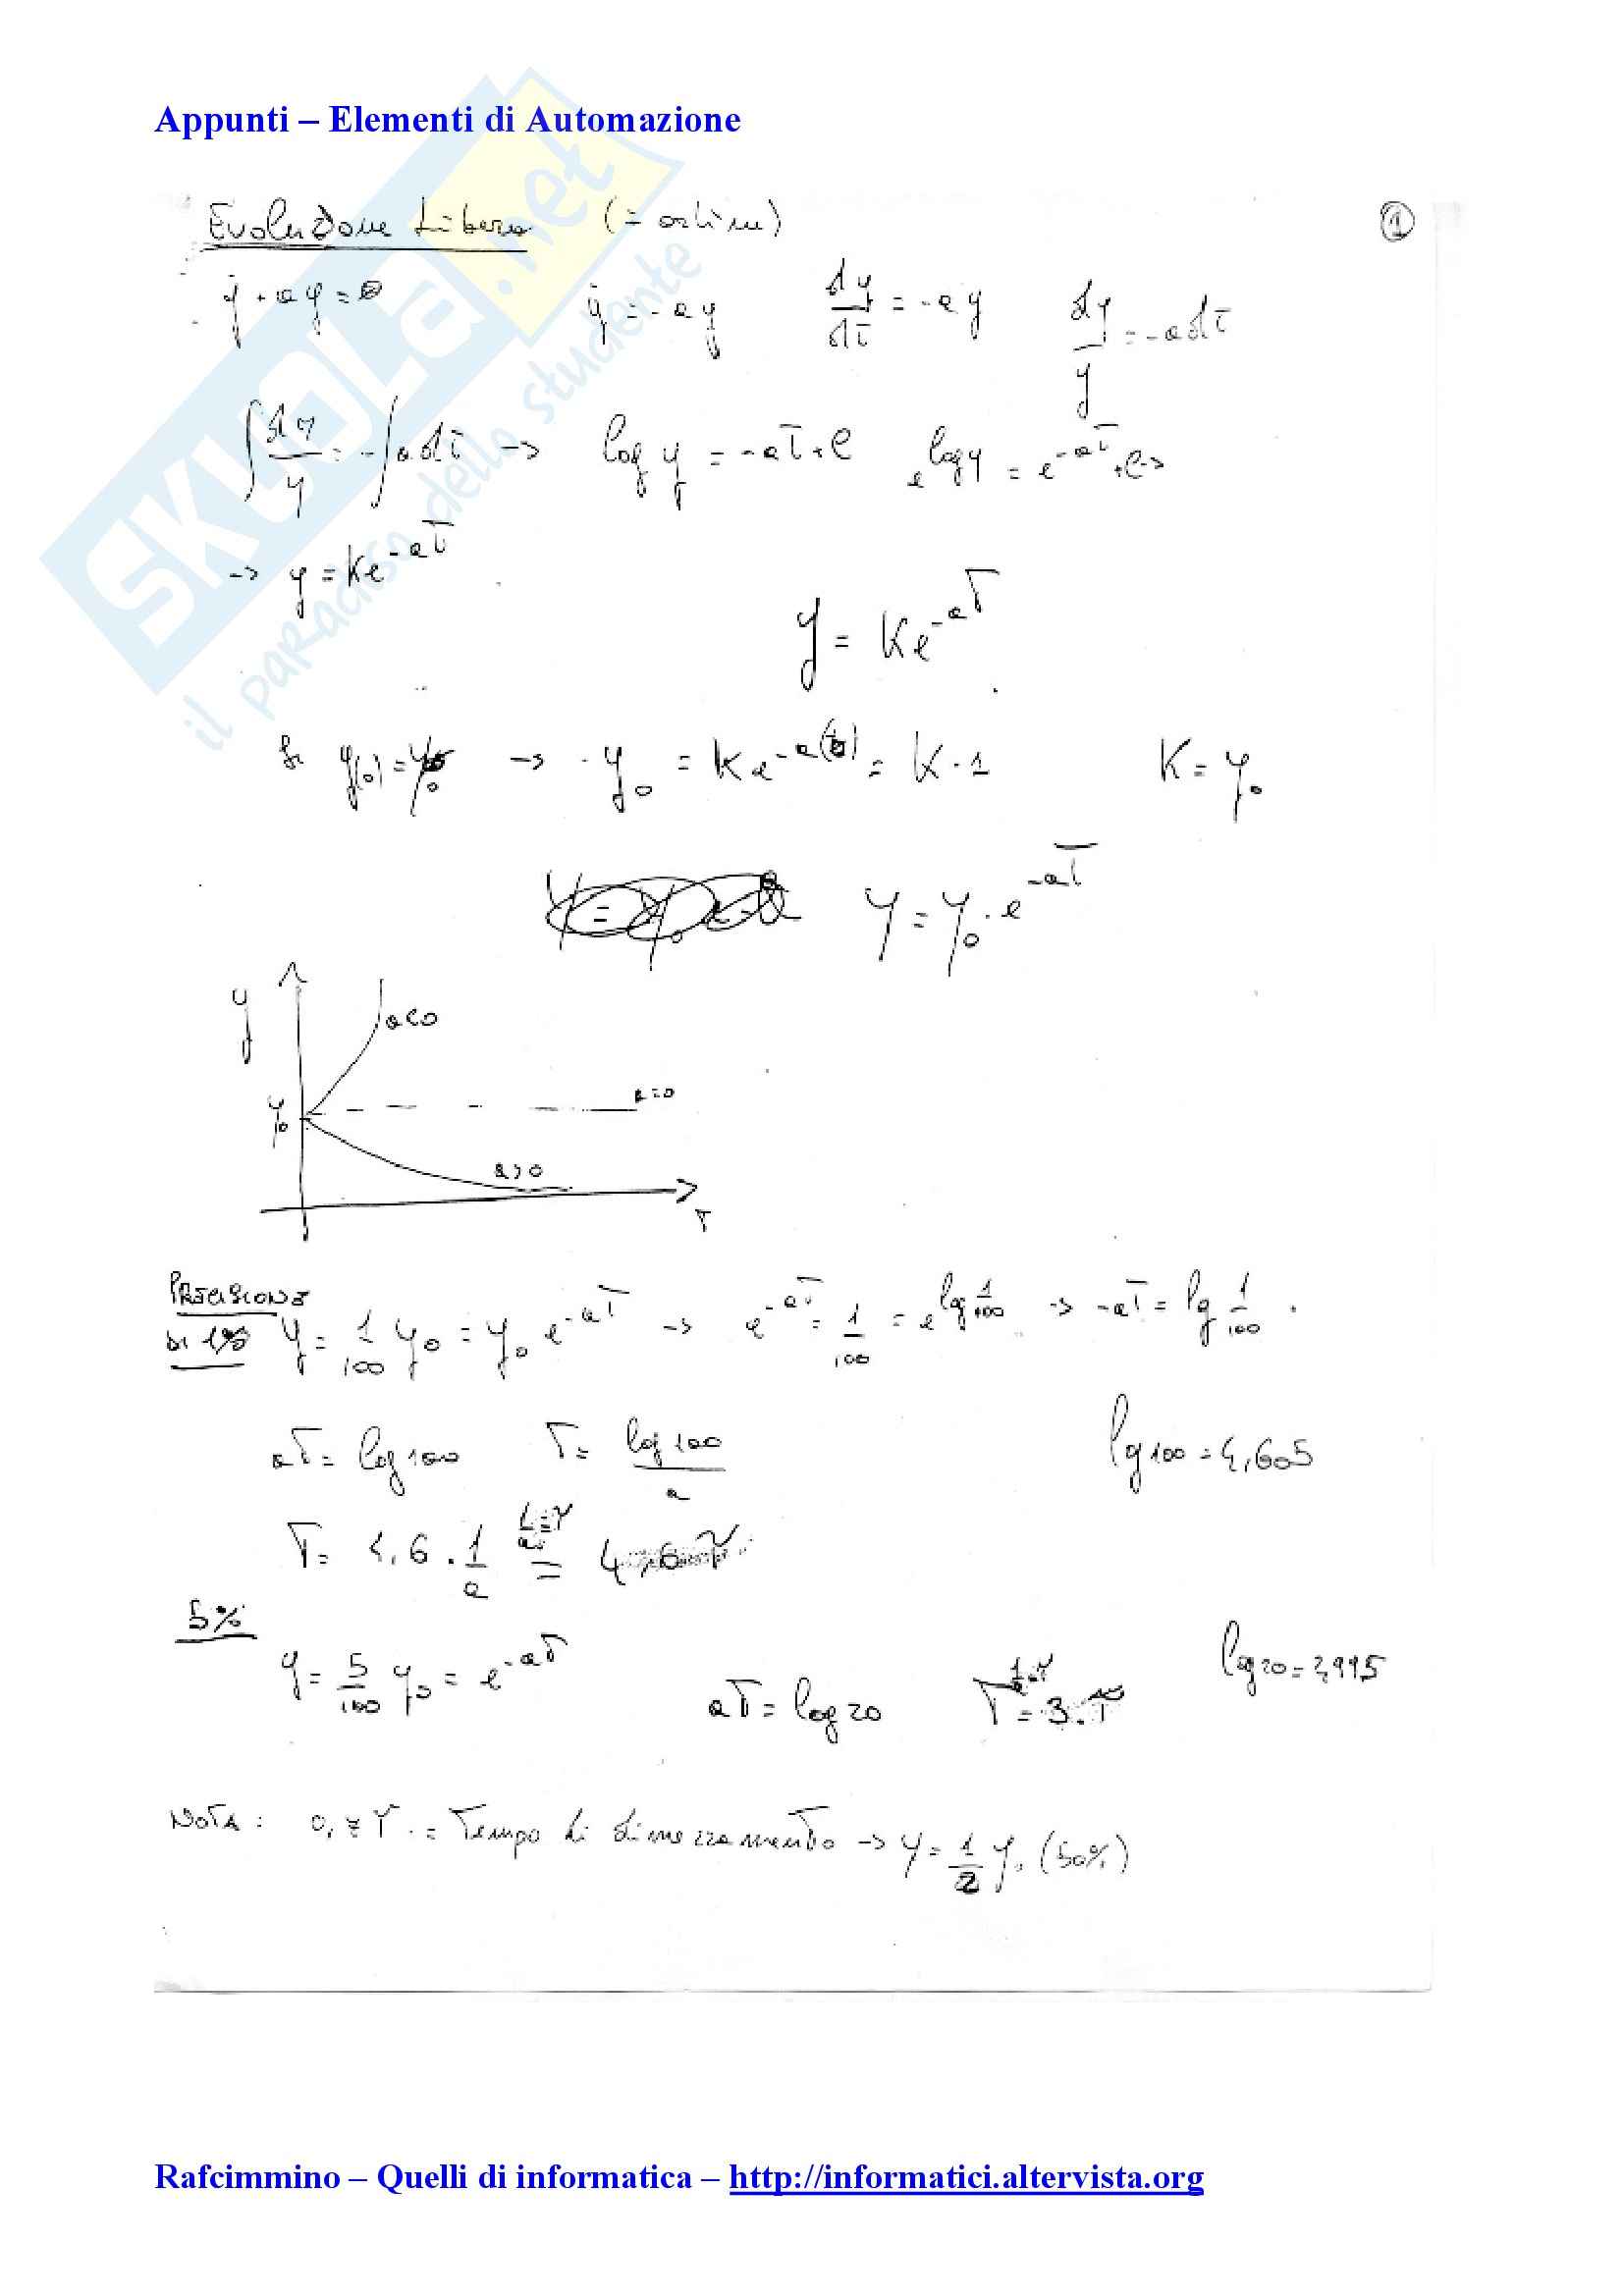 Appunti – Elementi di Automazione
SKUOLA.net
il paradiso dello studente
Evoluzione Libera (= ordine) ①
ẏ + ay = 0   ẏ = -ay   dy/dt = -ay   dy/y = -a dt
∫ dy/y = -∫ a dt → log y = -at + c   e^log y = e^-at + c →
→ y = Ke^-at
y = Ke^-at
Se y(0) = y₀ → y₀ = Ke^-a(0) = K·1   K = y₀
y = y₀ · e^-at
y
a<0
y₀
a=0
a>0
T
PRECISIONE
DI 1% y = 1/100 y₀ = y₀ e^-at → e^-at = 1/100 = e^log 1/100 → -at = log 1/100
aT = log 100   T = log 100/a   log 100 = 4,605
T = 4,6 · 1/a = 4,6 τ
1/a = τ
5%
y = 5/100 y₀ = e^-aT   aT = log 20   T = 3·τ   log 20 = 2,995
NOTA: 0,7 τ = Tempo di dimezzamento → y = 1/2 y₀ (50%)
Rafcimmino – Quelli di informatica – http://informatici.altervista.org